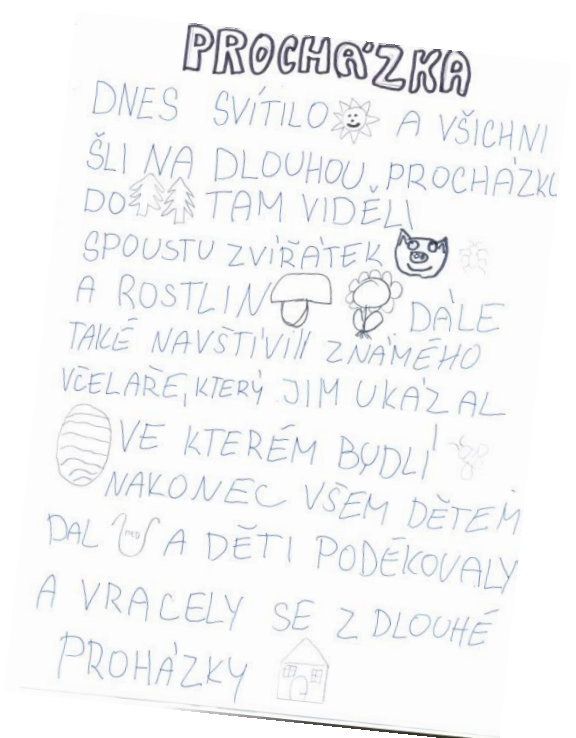 PROCHÁZKA
DNES SVÍTILO A VŠICHNI
ŠLI NA DLOUHOU PROCHÁZKU
DO TAM VIDĚLI
SPOUSTU ZVÍŘÁTEK
A ROSTLIN DÁLE
TAKÉ NAVŠTÍVILI ZNÁMÉHO
VČELAŘE, KTERÝ JIM UKÁZAL
VE KTERÉM BYDLÍ
NAKONEC VŠEM DĚTEM
DAL MED A DĚTI PODĚKOVALY
A VRACELY SE Z DLOUHÉ
PROHÁZKY